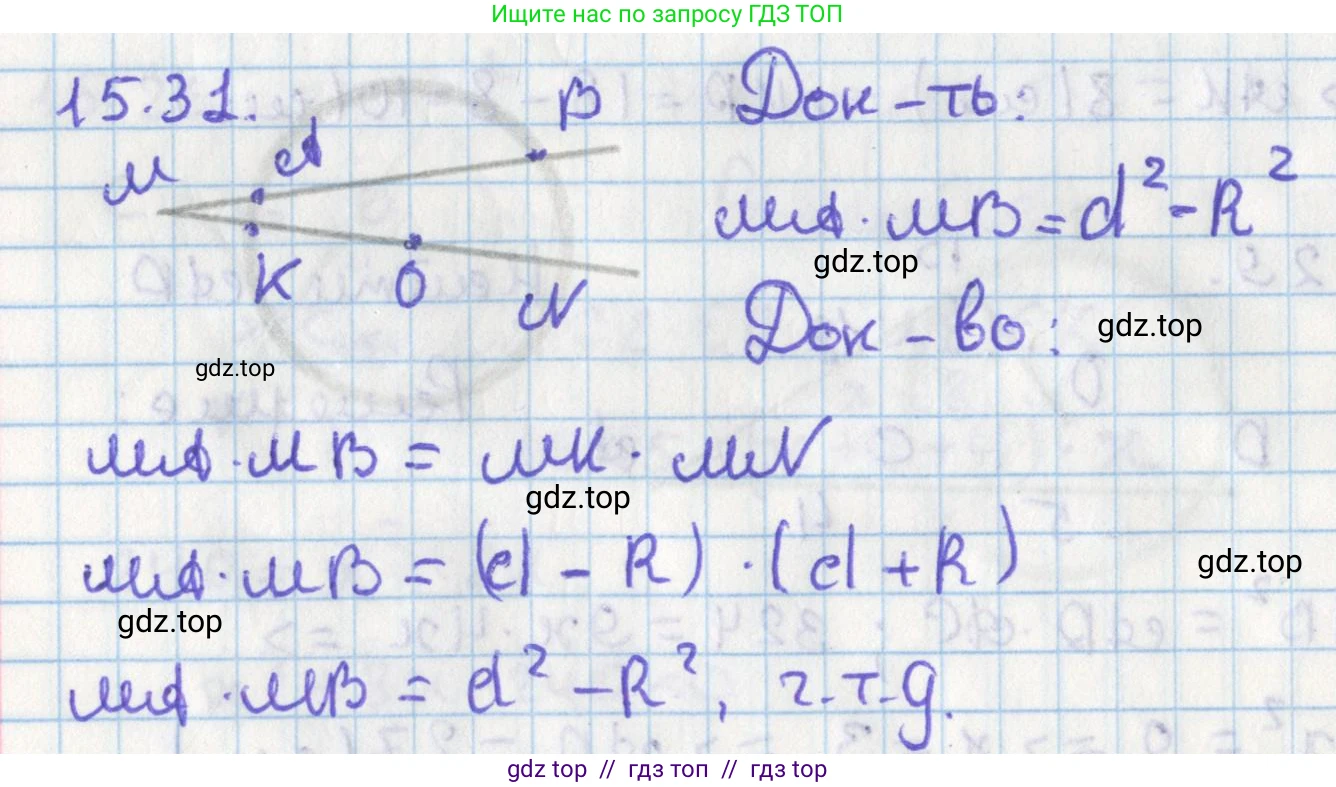 Ищите нас по запросу ГДЗ ТОП
15.31.
M
A
B
K
O
N
Док-ть:
MA · MB = d² - R²
gdz.top
Док-во:
gdz.top
gdz.top
MA · MB = MK · MN
gdz.top
MA · MB = (d - R) · (d + R)
gdz.top
gdz.top
MA · MB = d² - R², ч.т.д.
gdz top // гдз топ // gdz top